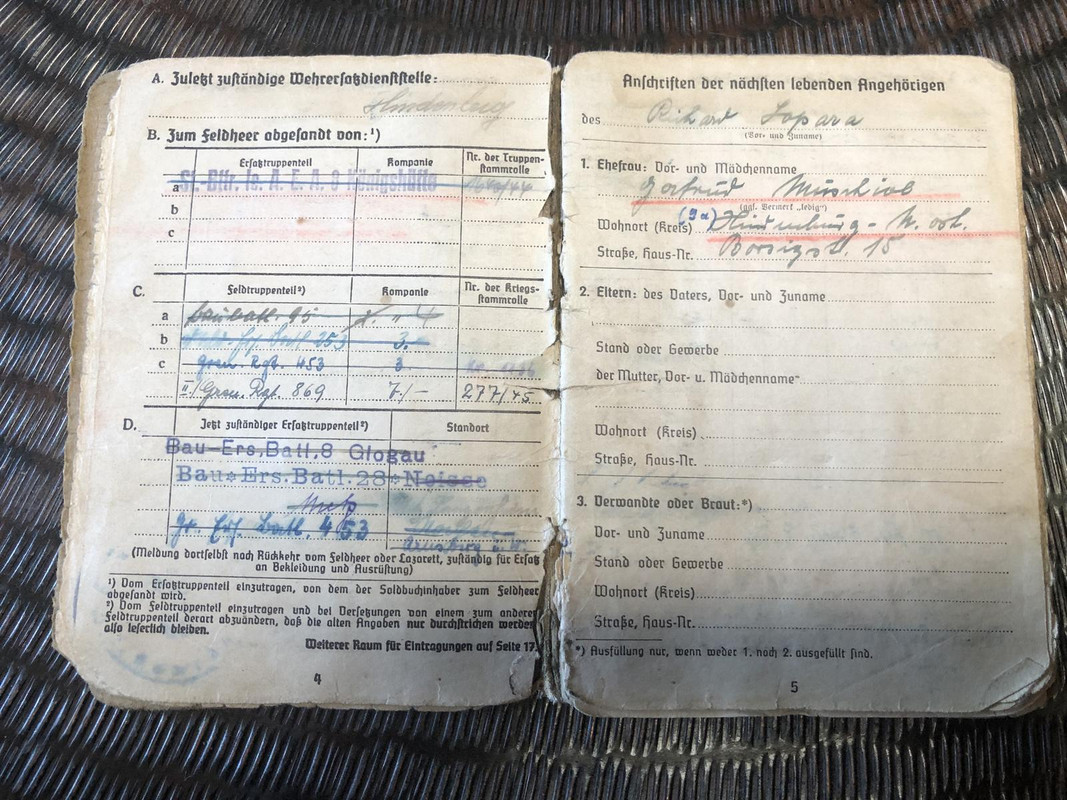 A. Zuletzt zuständige Wehrersatzdienststelle:
Hindenburg
B. Zum Feldheer abgesandt von:¹)
Ersatztruppenteil
Kompanie
Nr. der Truppen-
stammrolle
a St.-Bttr. le. A. E. A. 8 Königshütte
b
c
C.
Feldtruppenteil²)
Kompanie
Nr. der Kriegs-
stammrolle
a Baubatl. 95 4
b Batl. 253 3.
c Gren. Rgt. 453 3
II./Gren. Rgt. 869 7./- 277/45
D.
Jetzt zuständiger Ersatztruppenteil²)
Standort
Bau-Ers.Batl.8 Glogau
Bau-Ers.Batl.28 Neisse
Gr. Ers. Batl. 453
(Meldung dortselbst nach Rückkehr vom Feldheer oder Lazarett, zuständig für Ersatz
an Bekleidung und Ausrüstung)
¹) Vom Ersatztruppenteil einzutragen, von dem der Soldbuchinhaber zum Feldheer
abgesandt wird.
²) Vom Feldtruppenteil einzutragen und bei Versetzungen von einem zum anderen
Feldtruppenteil derart abzuändern, daß die alten Angaben nur durchstrichen werden,
also leserlich bleiben.
Weiterer Raum für Eintragungen auf Seite 17.
4
Anschriften der nächsten lebenden Angehörigen
des Richard Sopara
(Vor- und Zuname)
1. Ehefrau: Vor- und Mädchenname
Gertrud Muschiol
(ggf. Vermerk „ledig")
Wohnort (Kreis) (9a) Hindenburg - O. obl.
Straße, Haus-Nr. Borsigstr. 15
2. Eltern: des Vaters, Vor- und Zuname
Stand oder Gewerbe
der Mutter, Vor- u. Mädchenname
Wohnort (Kreis)
Straße, Haus-Nr.
3. Verwandte oder Braut:*)
Vor- und Zuname
Stand oder Gewerbe
Wohnort (Kreis)
Straße, Haus-Nr.
*) Ausfüllung nur, wenn weder 1. noch 2. ausgefüllt sind.
5